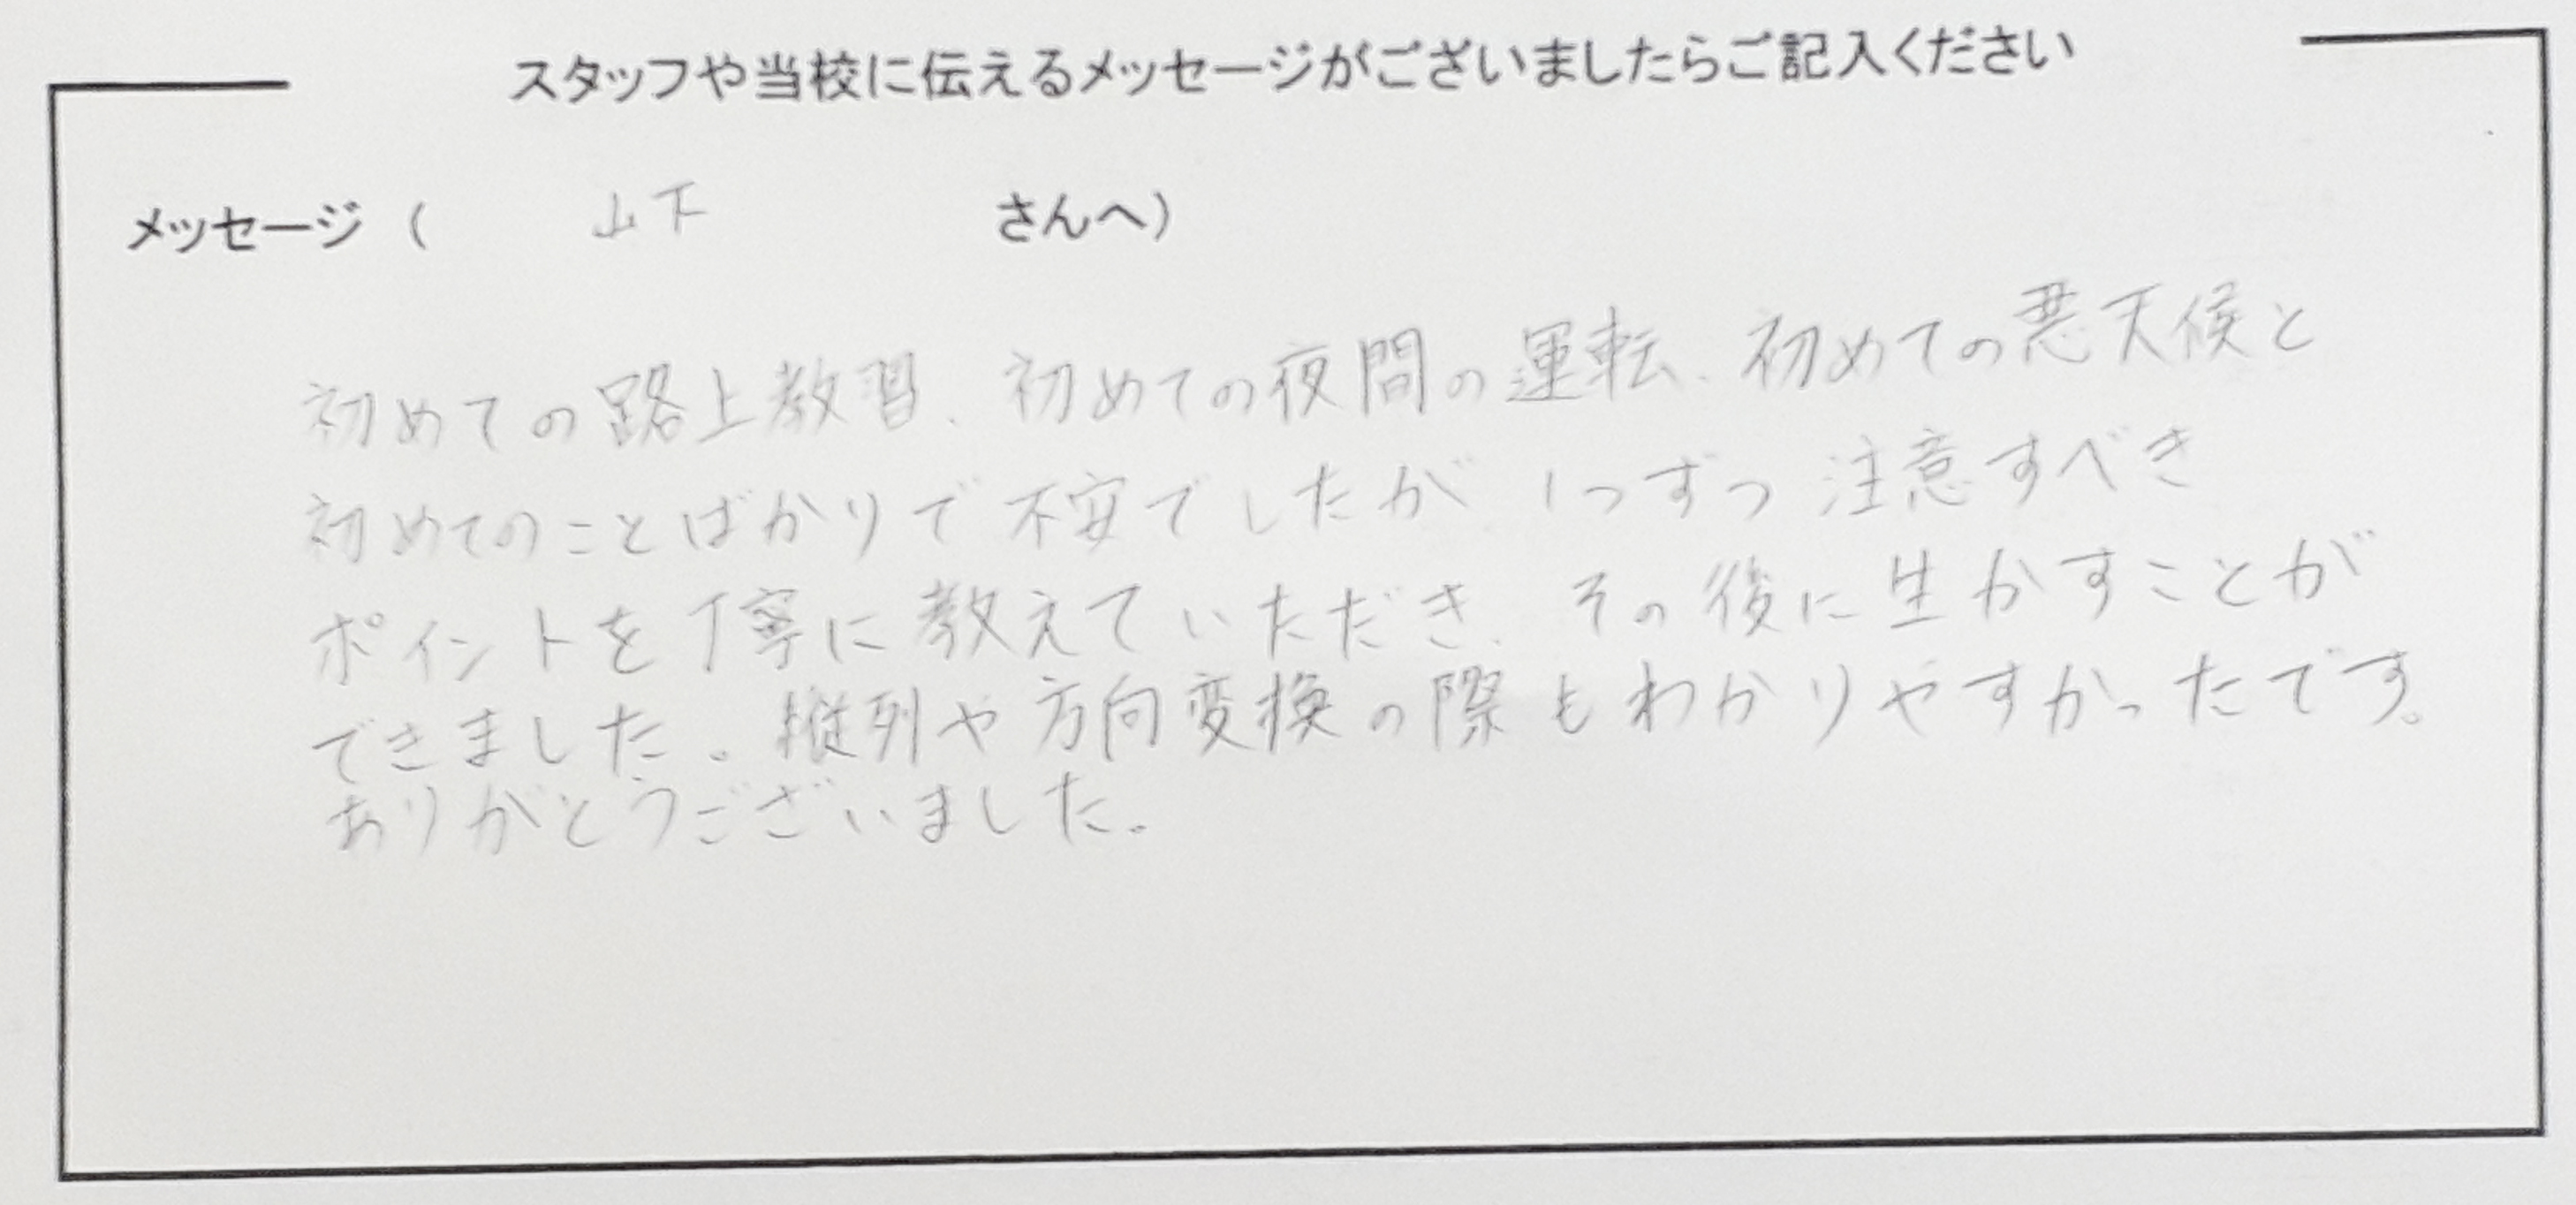 スタッフや当校に伝えるメッセージがございましたらご記入ください
メッセージ（ 山下 さんへ）
初めての路上教習、初めての夜間の運転、初めての悪天候と
初めてのことばかりで不安でしたが、1つずつ注意すべき
ポイントを丁寧に教えていただき、その後に生かすことが
できました。縦列や方向変換の際もわかりやすかったです。
ありがとうございました。